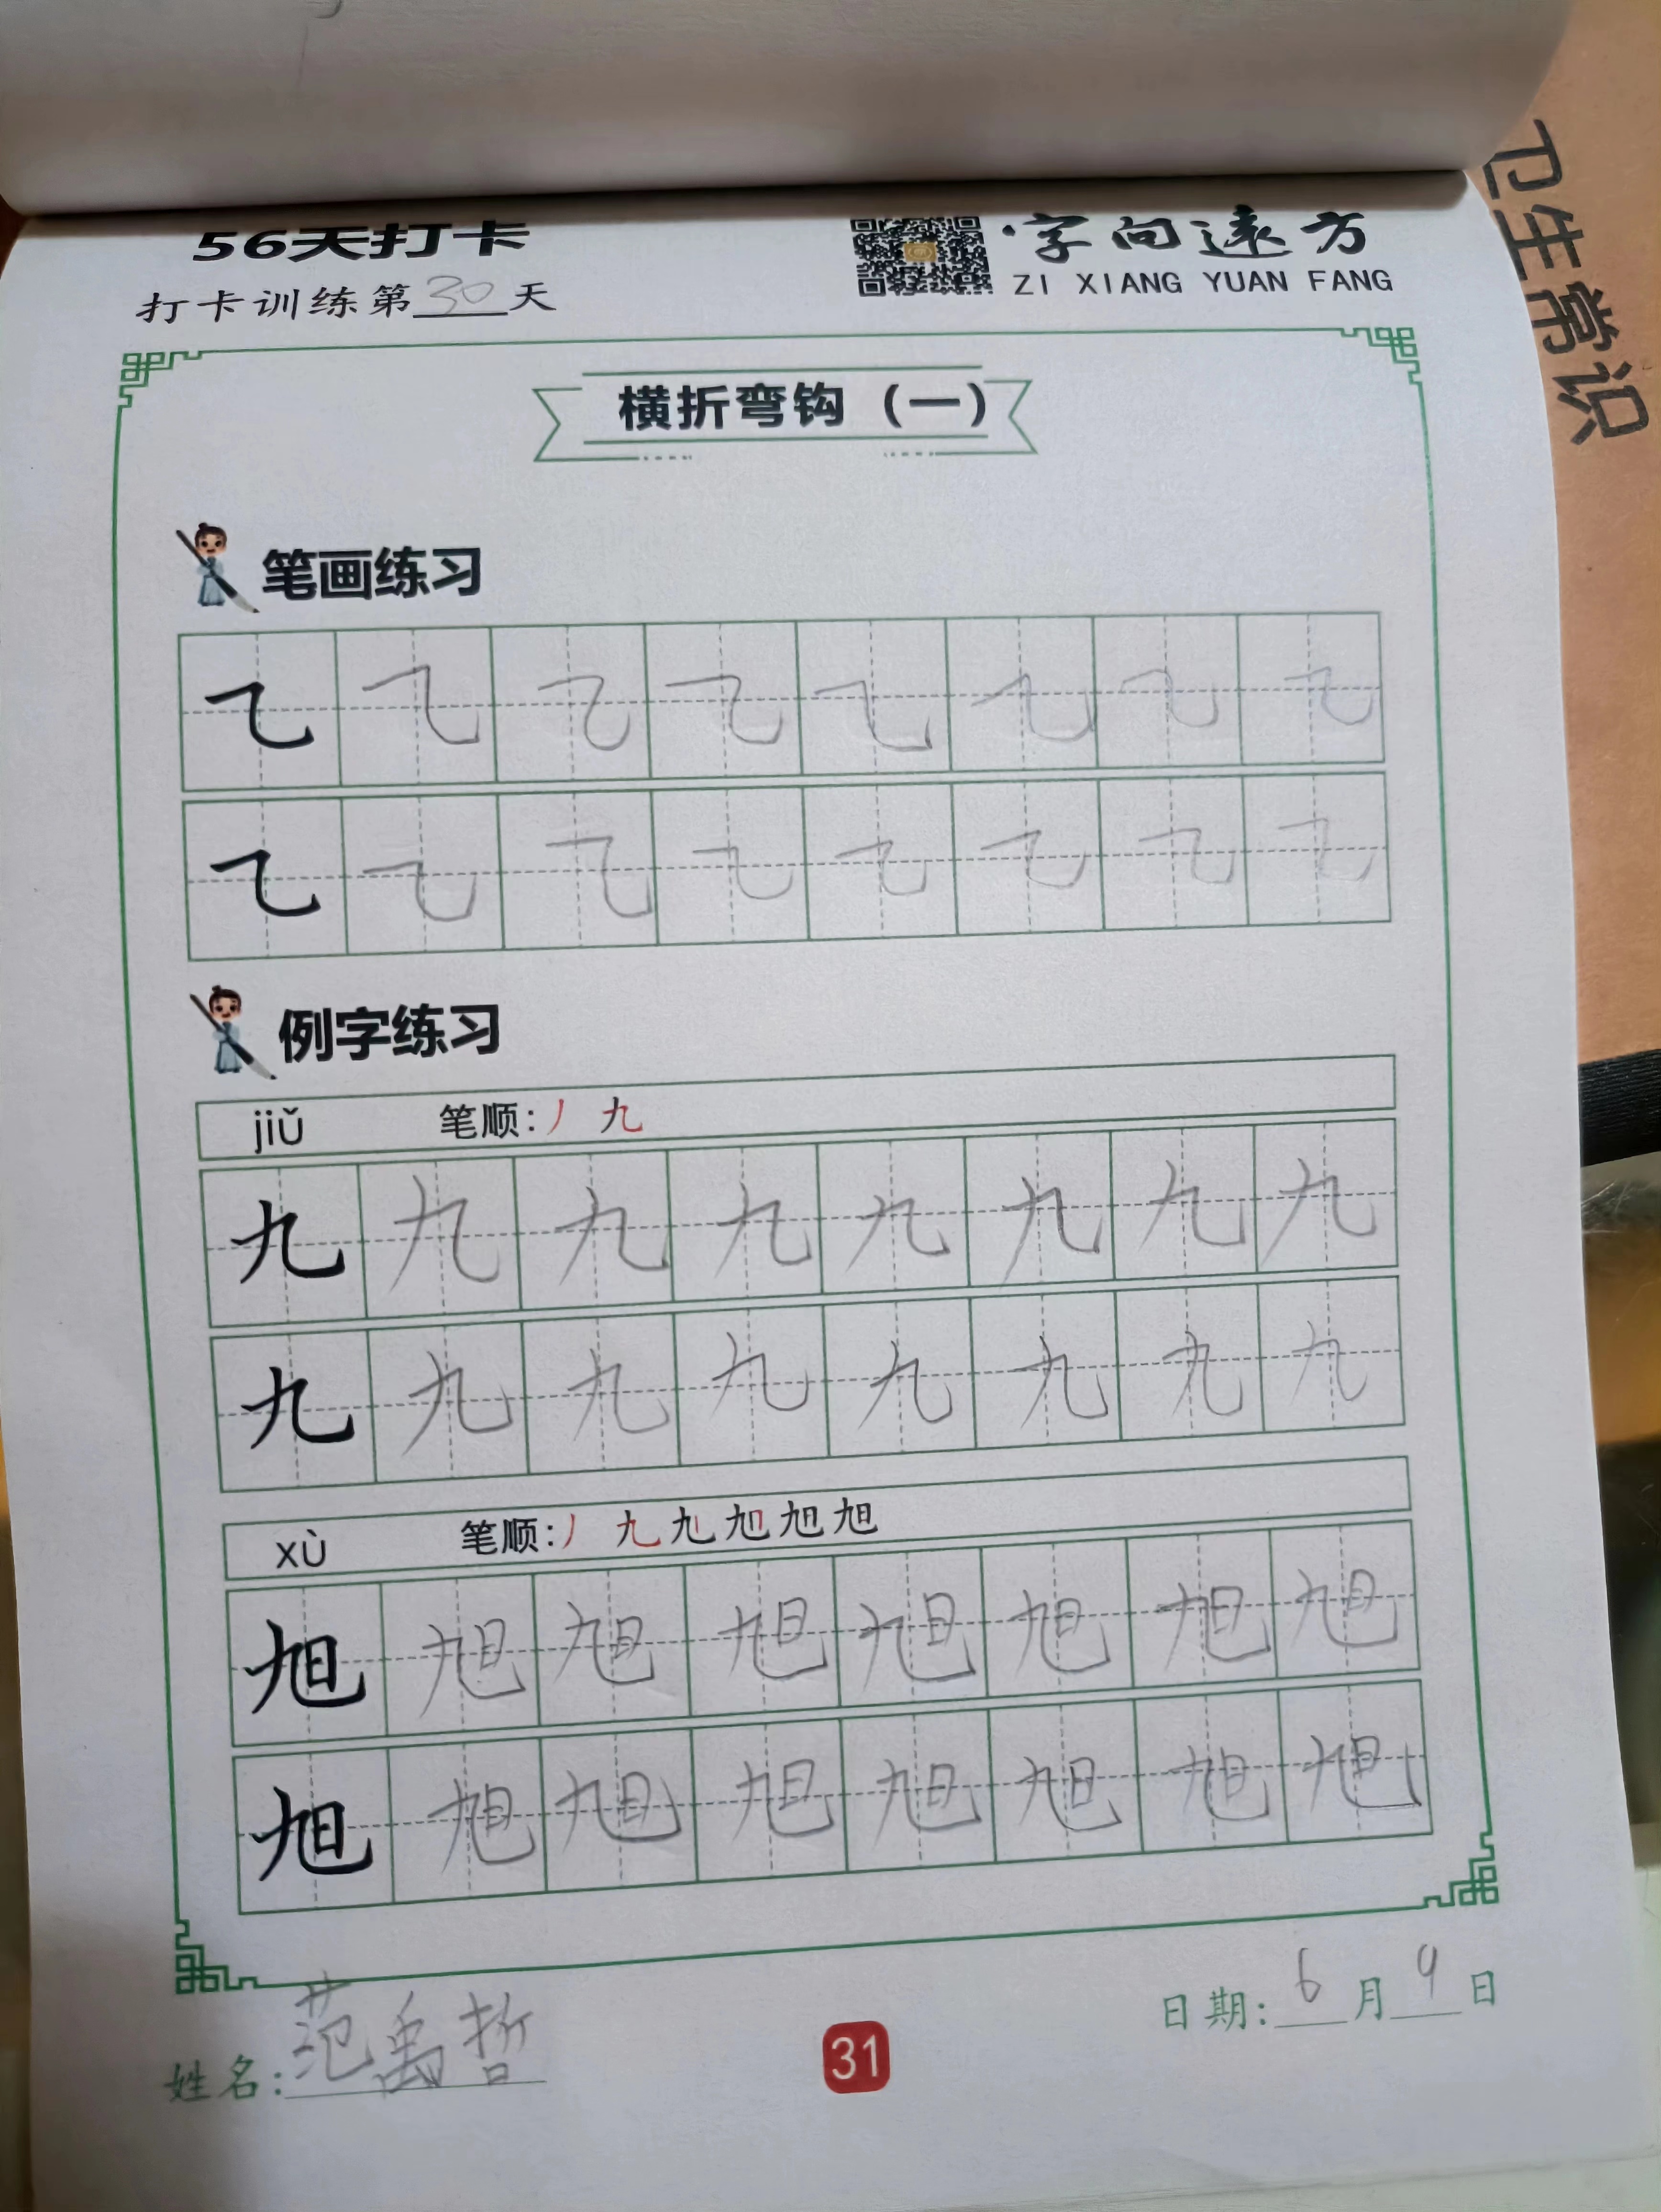 56天打卡
·字向远方
ZI XIANG YUAN FANG
打卡训练第30天
卫生常识
横折弯钩（一）
笔画练习
㇈ ㇈ ㇈ ㇈ ㇈ ㇈ ㇈ ㇈
㇈ ㇈ ㇈ ㇈ ㇈ ㇈ ㇈ ㇈
例字练习
jiǔ 笔顺：丿 九
九 九 九 九 九 九 九 九
九 九 九 九 九 九 九 九
xù 笔顺：丿 九
旭 旭 旭 旭 旭 旭 旭 旭
旭 旭 旭 旭 旭 旭 旭 旭
姓名：范禹哲
31
日期：6月9日